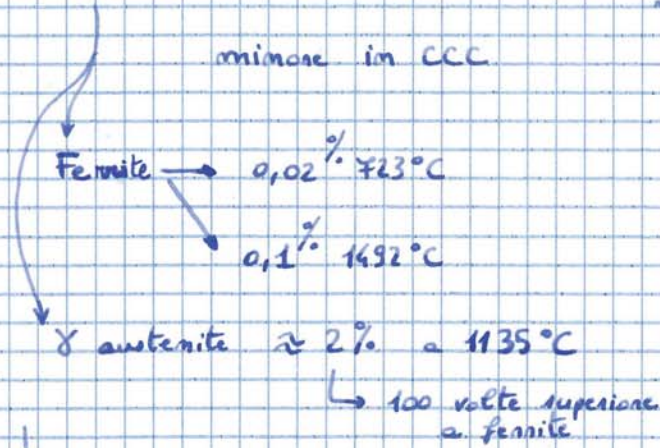 minore in CCC
Ferrite → 0,02% 723°C
0,1% 1492°C
γ austenite ≈ 2% a 1135°C
↳ 100 volte superiore
a ferrite